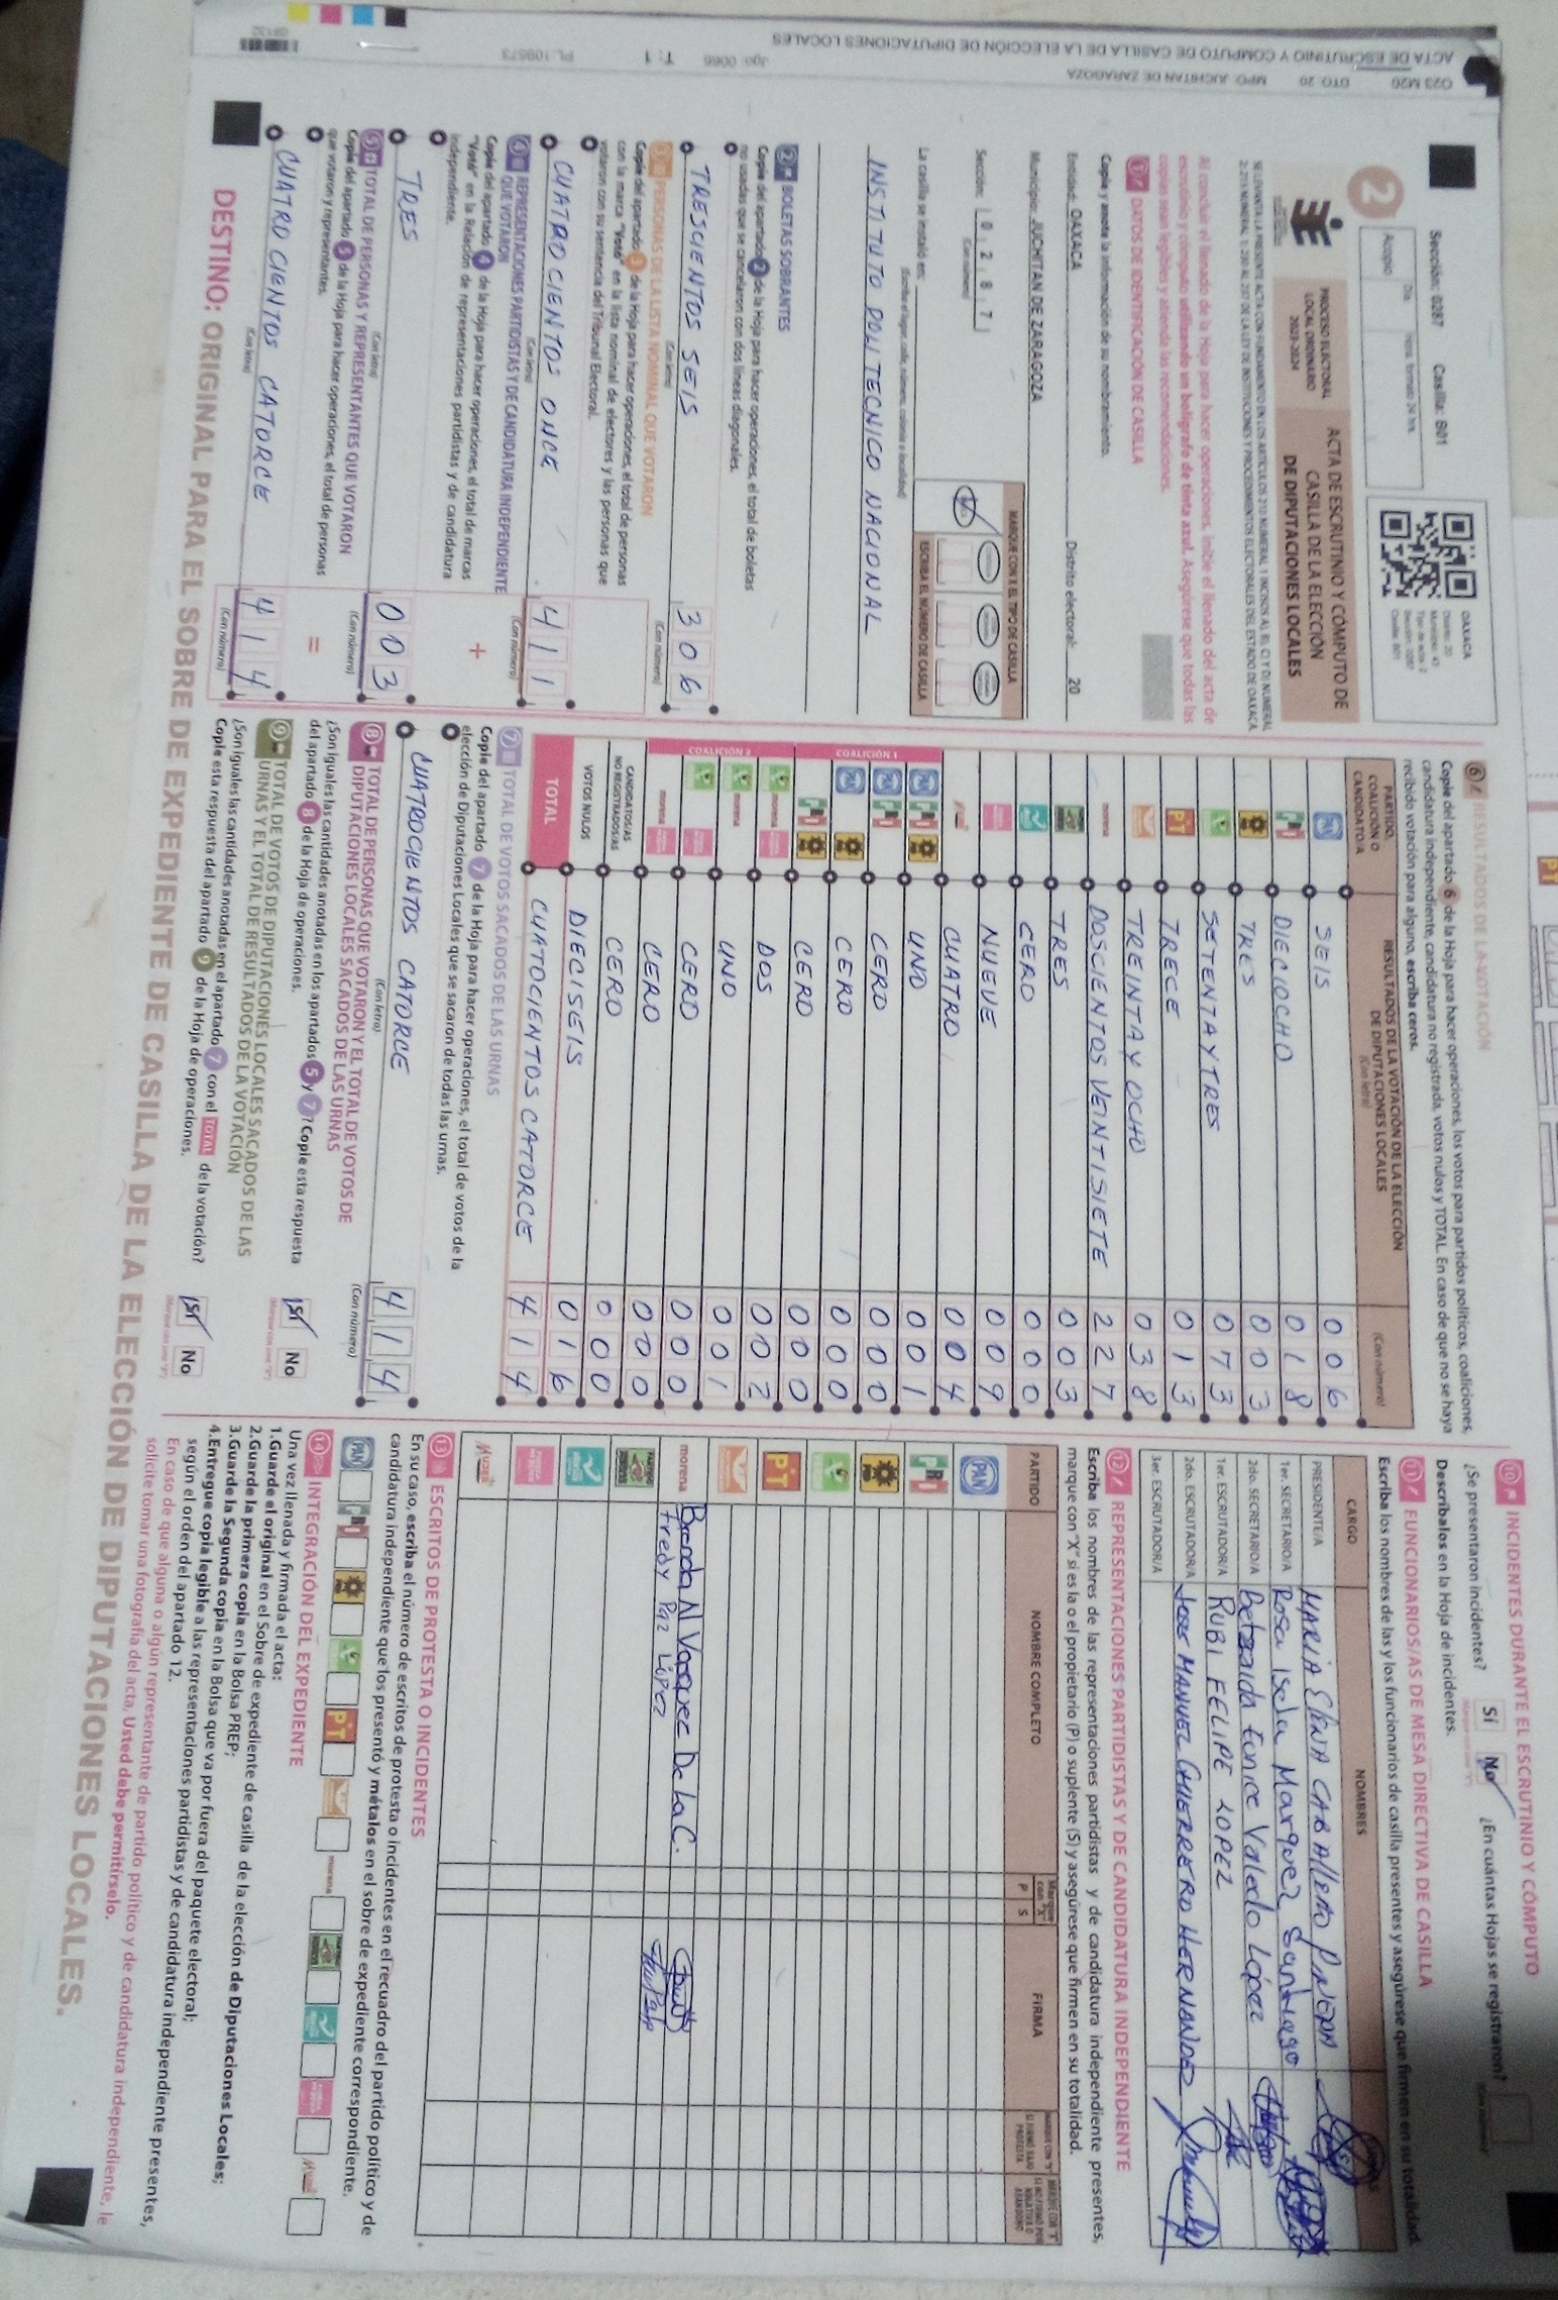 ACTA DE ESCRUTINIO Y CÓMPUTO DE CASILLA DE LA ELECCIÓN DE DIPUTACIONES LOCALES
023 M26 DTO: 20 MPO: JUCHITAN DE ZARAGOZA
T: 1
PL:109573
Sección: 0287 Casilla: B01
2
Acopio
OAXACA
PROCESO ELECTORAL
LOCAL ORDINARIO
2023-2024
ACTA DE ESCRUTINIO Y CÓMPUTO DE
CASILLA DE LA ELECCIÓN
DE DIPUTACIONES LOCALES
Al concluir el llenado de la Hoja para hacer operaciones, inicie el llenado del acta de
escrutinio y cómputo utilizando un bolígrafo de tinta azul. Asegúrese que todas las
copias sean legibles y atienda las recomendaciones.
1 DATOS DE IDENTIFICACIÓN DE CASILLA
Copie y anote la información de su nombramiento.
Entidad: OAXACA Distrito electoral: 20
Municipio: JUCHITAN DE ZARAGOZA
Sección: 0 2 8 7
(Con número)
MARQUE CON X EL TIPO DE CASILLA
ESCRIBA EL NÚMERO DE CASILLA
La casilla se instaló en:
(Escriba el lugar, calle, número, colonia o localidad)
INSTITUTO POLITECNICO NACIONAL
2 BOLETAS SOBRANTES
Copie del apartado 2 de la Hoja para hacer operaciones, el total de boletas
no usadas que se cancelaron con dos líneas diagonales.
TRESCIENTOS SEIS 306
(Con letra) (Con número)
3 PERSONAS DE LA LISTA NOMINAL QUE VOTARON
Copie del apartado 3 de la Hoja para hacer operaciones, el total de personas
con la marca "Votó" en la lista nominal de electores y las personas que
votaron con su sentencia del Tribunal Electoral.
CUATROCIENTOS ONCE 411
(Con letra) (Con número)
4 REPRESENTACIONES PARTIDISTAS Y DE CANDIDATURA INDEPENDIENTE
QUE VOTARON
Copie del apartado 4 de la Hoja para hacer operaciones, el total de marcas
"Votó" en la Relación de representaciones partidistas y de candidatura
independiente.
+
TRES 003
(Con letra) (Con número)
5 TOTAL DE PERSONAS Y REPRESENTANTES QUE VOTARON
Copie del apartado 5 de la Hoja para hacer operaciones, el total de personas
que votaron y representantes.
=
CUATROCIENTOS CATORCE 414
(Con letra) (Con número)
DESTINO: ORIGINAL PARA EL SOBRE DE EXPEDIENTE DE CASILLA DE LA ELECCIÓN DE DIPUTACIONES LOCALES.
6 RESULTADOS DE LA VOTACIÓN
Copie del apartado 6 de la Hoja para hacer operaciones, los votos para partidos políticos, coaliciones,
candidatura independiente, candidatura no registrada, votos nulos y TOTAL. En caso de que no se haya
recibido votación para alguno, escriba ceros.
PARTIDO,
COALICIÓN O
CANDIDATO/A
RESULTADOS DE LA VOTACIÓN DE LA ELECCIÓN
DE DIPUTACIONES LOCALES
(Con letra)
(Con número)
PAN SEIS 006
PRI DIECIOCHO 018
PRD TRES 003
SETENTA Y TRES 073
PT TRECE 013
TREINTA Y OCHO 038
morena DOSCIENTOS VEINTISIETE 227
TRES 003
CERO 000
NUEVE 009
CUATRO 004
COALICIÓN 1
PAN PRI PRD UNO 001
PAN PRI CERO 000
PAN PRD CERO 000
PRI PRD CERO 000
COALICIÓN 2
morena DOS 002
morena UNO 001
CERO 000
morena CERO 000
CANDIDATOS/AS
NO REGISTRADOS/AS CERO 000
VOTOS NULOS DIECISEIS 016
TOTAL CUATOCIENTOS CATORCE 414
7 TOTAL DE VOTOS SACADOS DE LAS URNAS
Copie del apartado 7 de la Hoja para hacer operaciones, el total de votos de la
elección de Diputaciones Locales que se sacaron de todas las urnas.
CUATROCIENTOS CATORCE 414
(Con letra) (Con número)
8 TOTAL DE PERSONAS QUE VOTARON Y EL TOTAL DE VOTOS DE
DIPUTACIONES LOCALES SACADOS DE LAS URNAS
¿Son iguales las cantidades anotadas en los apartados 5 y 7? Copie esta respuesta
del apartado 8 de la Hoja de operaciones.
Sí No
9 TOTAL DE VOTOS DE DIPUTACIONES LOCALES SACADOS DE LAS
URNAS Y EL TOTAL DE RESULTADOS DE LA VOTACIÓN
¿Son iguales las cantidades anotadas en el apartado 7 con el TOTAL de la votación?
Copie esta respuesta del apartado 9 de la Hoja de operaciones.
Sí No
10 INCIDENTES DURANTE EL ESCRUTINIO Y CÓMPUTO
¿Se presentaron incidentes? Sí No ¿En cuántas Hojas se registraron?
Descríbalos en la Hoja de incidentes.
11 FUNCIONARIOS/AS DE MESA DIRECTIVA DE CASILLA
Escriba los nombres de las y los funcionarios de casilla presentes y asegúrese que firmen en su totalidad.
CARGO NOMBRES FIRMAS
PRESIDENTE/A MARIA ELENA CABALLERO PINEDA
1er. SECRETARIO/A Rosa Isela Marquez Santiago
2do. SECRETARIO/A Betzaida Eunice Valedo López
1er. ESCRUTADOR/A RUBI FELIPE LOPEZ
2do. ESCRUTADOR/A Jose MANUEL GUIERRETRO HERNANDEZ
3er. ESCRUTADOR/A
12 REPRESENTACIONES PARTIDISTAS Y DE CANDIDATURA INDEPENDIENTE
Escriba los nombres de las representaciones partidistas y de candidatura independiente presentes,
marque con "X" si es la o el propietario (P) o suplente (S) y asegúrese que firmen en su totalidad.
PARTIDO NOMBRE COMPLETO Marque con "X" P S FIRMA
PAN
PRI
PRD
PT
morena Brenda N Vasquez De La C.
Fredy Paz López
13 ESCRITOS DE PROTESTA O INCIDENTES
En su caso, escriba el número de escritos de protesta o incidentes en el recuadro del partido político y de
candidatura independiente que los presentó y métalos en el sobre de expediente correspondiente.
PAN PRI PRD PT morena
14 INTEGRACIÓN DEL EXPEDIENTE
Una vez llenada y firmada el acta:
1.Guarde el original en el Sobre de expediente de casilla de la elección de Diputaciones Locales;
2.Guarde la primera copia en la Bolsa PREP;
3.Guarde la Segunda copia en la Bolsa que va por fuera del paquete electoral;
4.Entregue copia legible a las representaciones partidistas y de candidatura independiente presentes,
según el orden del apartado 12.
En caso de que alguna o algún representante de partido político y de candidatura independiente, le
solicite tomar una fotografía del acta, Usted debe permitírselo.